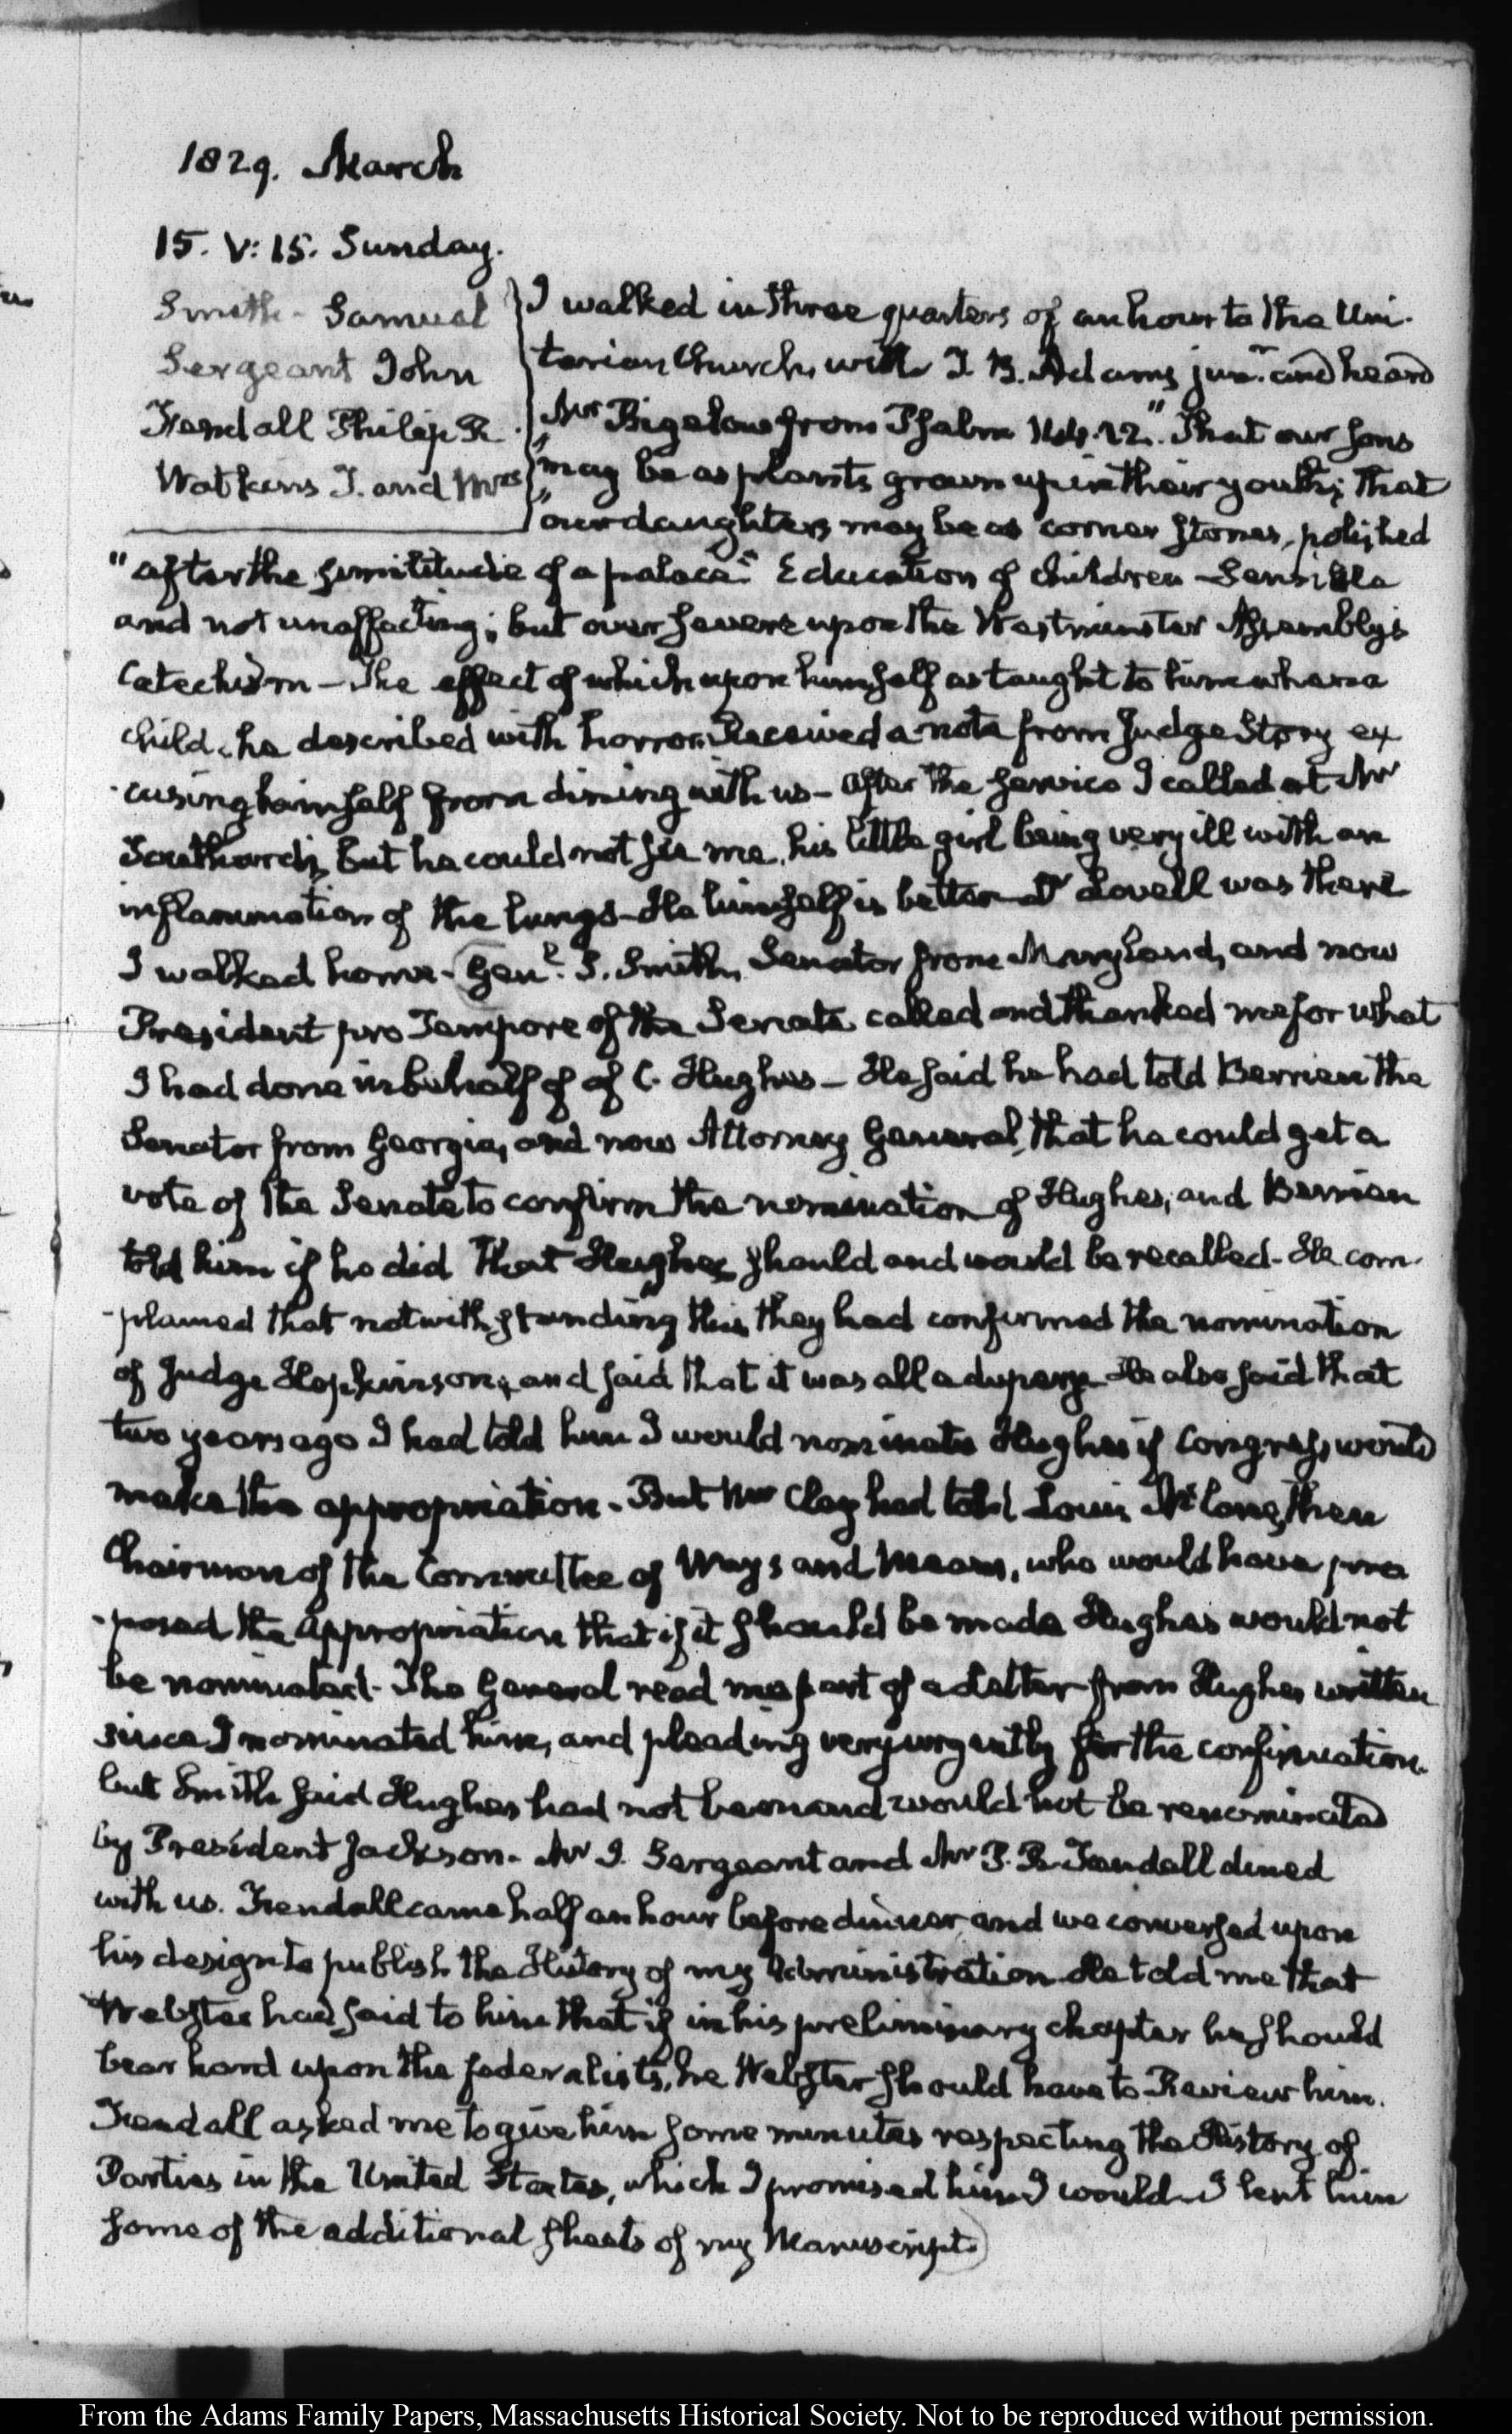 1829. March
15. V: 15. Sunday.
Smith - Samuel
Sergeant John
Fendall Philip R.
Watkins T. and Mrs
I walked in three quarters of an hour to the Uni-
tarian Church, with T. B. Adams junr. and heard
Mr Bigelow from Psalm 144. 12. "That our sons
"may be as plants grown up in their youth; that
"our daughters may be as corner stones, polished
"after the similitude of a palace." Education of children - Sensible
and not unaffecting; but over severe upon the Westminster Assembly's
Catechism - The effect of which upon himself as taught to him when a
child, he described with horror. Received a note from Judge Story ex-
-cusing himself from dining with us - After the service I called at Mr
Southard's, but he could not see me, his little girl being very ill with an
inflammation of the lungs - He himself is better - Dr Lovell was there
I walked home - Genl. S. Smith, Senator from Maryland, and now
President pro Tempore of the Senate called and thanked me for what
I had done in behalf of of C. Hughes - He said he had told Berrien the
Senator from Georgia, and now Attorney General, that he could get a
vote of the Senate to confirm the nomination of Hughes; and Berrien
told him if he did that Hughes should and would be recalled - He com-
-plained that notwithstanding this, they had confirmed the nomination
of Judge Hopkinson; and said that it was all a dupery. He also said that
two years ago I had told him I would nominate Hughes if Congress would
make the appropriation - But Mr Clay had told Louis McLane, then
Chairman of the Committee of Ways and Means, who would have pro-
-posed the appropriation that if it should be made Hughes would not
be nominated - The General read me part of a Letter from Hughes written
since I nominated him, and pleading very urgently for the confirmation.
but Smith said Hughes had not been and would not be renominated
by President Jackson - Mr J. Sergeant and Mr P. R. Fendall dined
with us. Fendall came half an hour before dinner and we conversed upon
his design to publish the History of my Administration He told me that
Webster had said to him that if in his preliminary chapter he should
bear hard upon the federalists, he Webster should have to Review him.
Fendall asked me to give him some minutes respecting the History of
Parties in the United States, which I promised him I would - I lent him
some of the additional sheets of my Manuscript.)
From the Adams Family Papers, Massachusetts Historical Society. Not to be reproduced without permission.